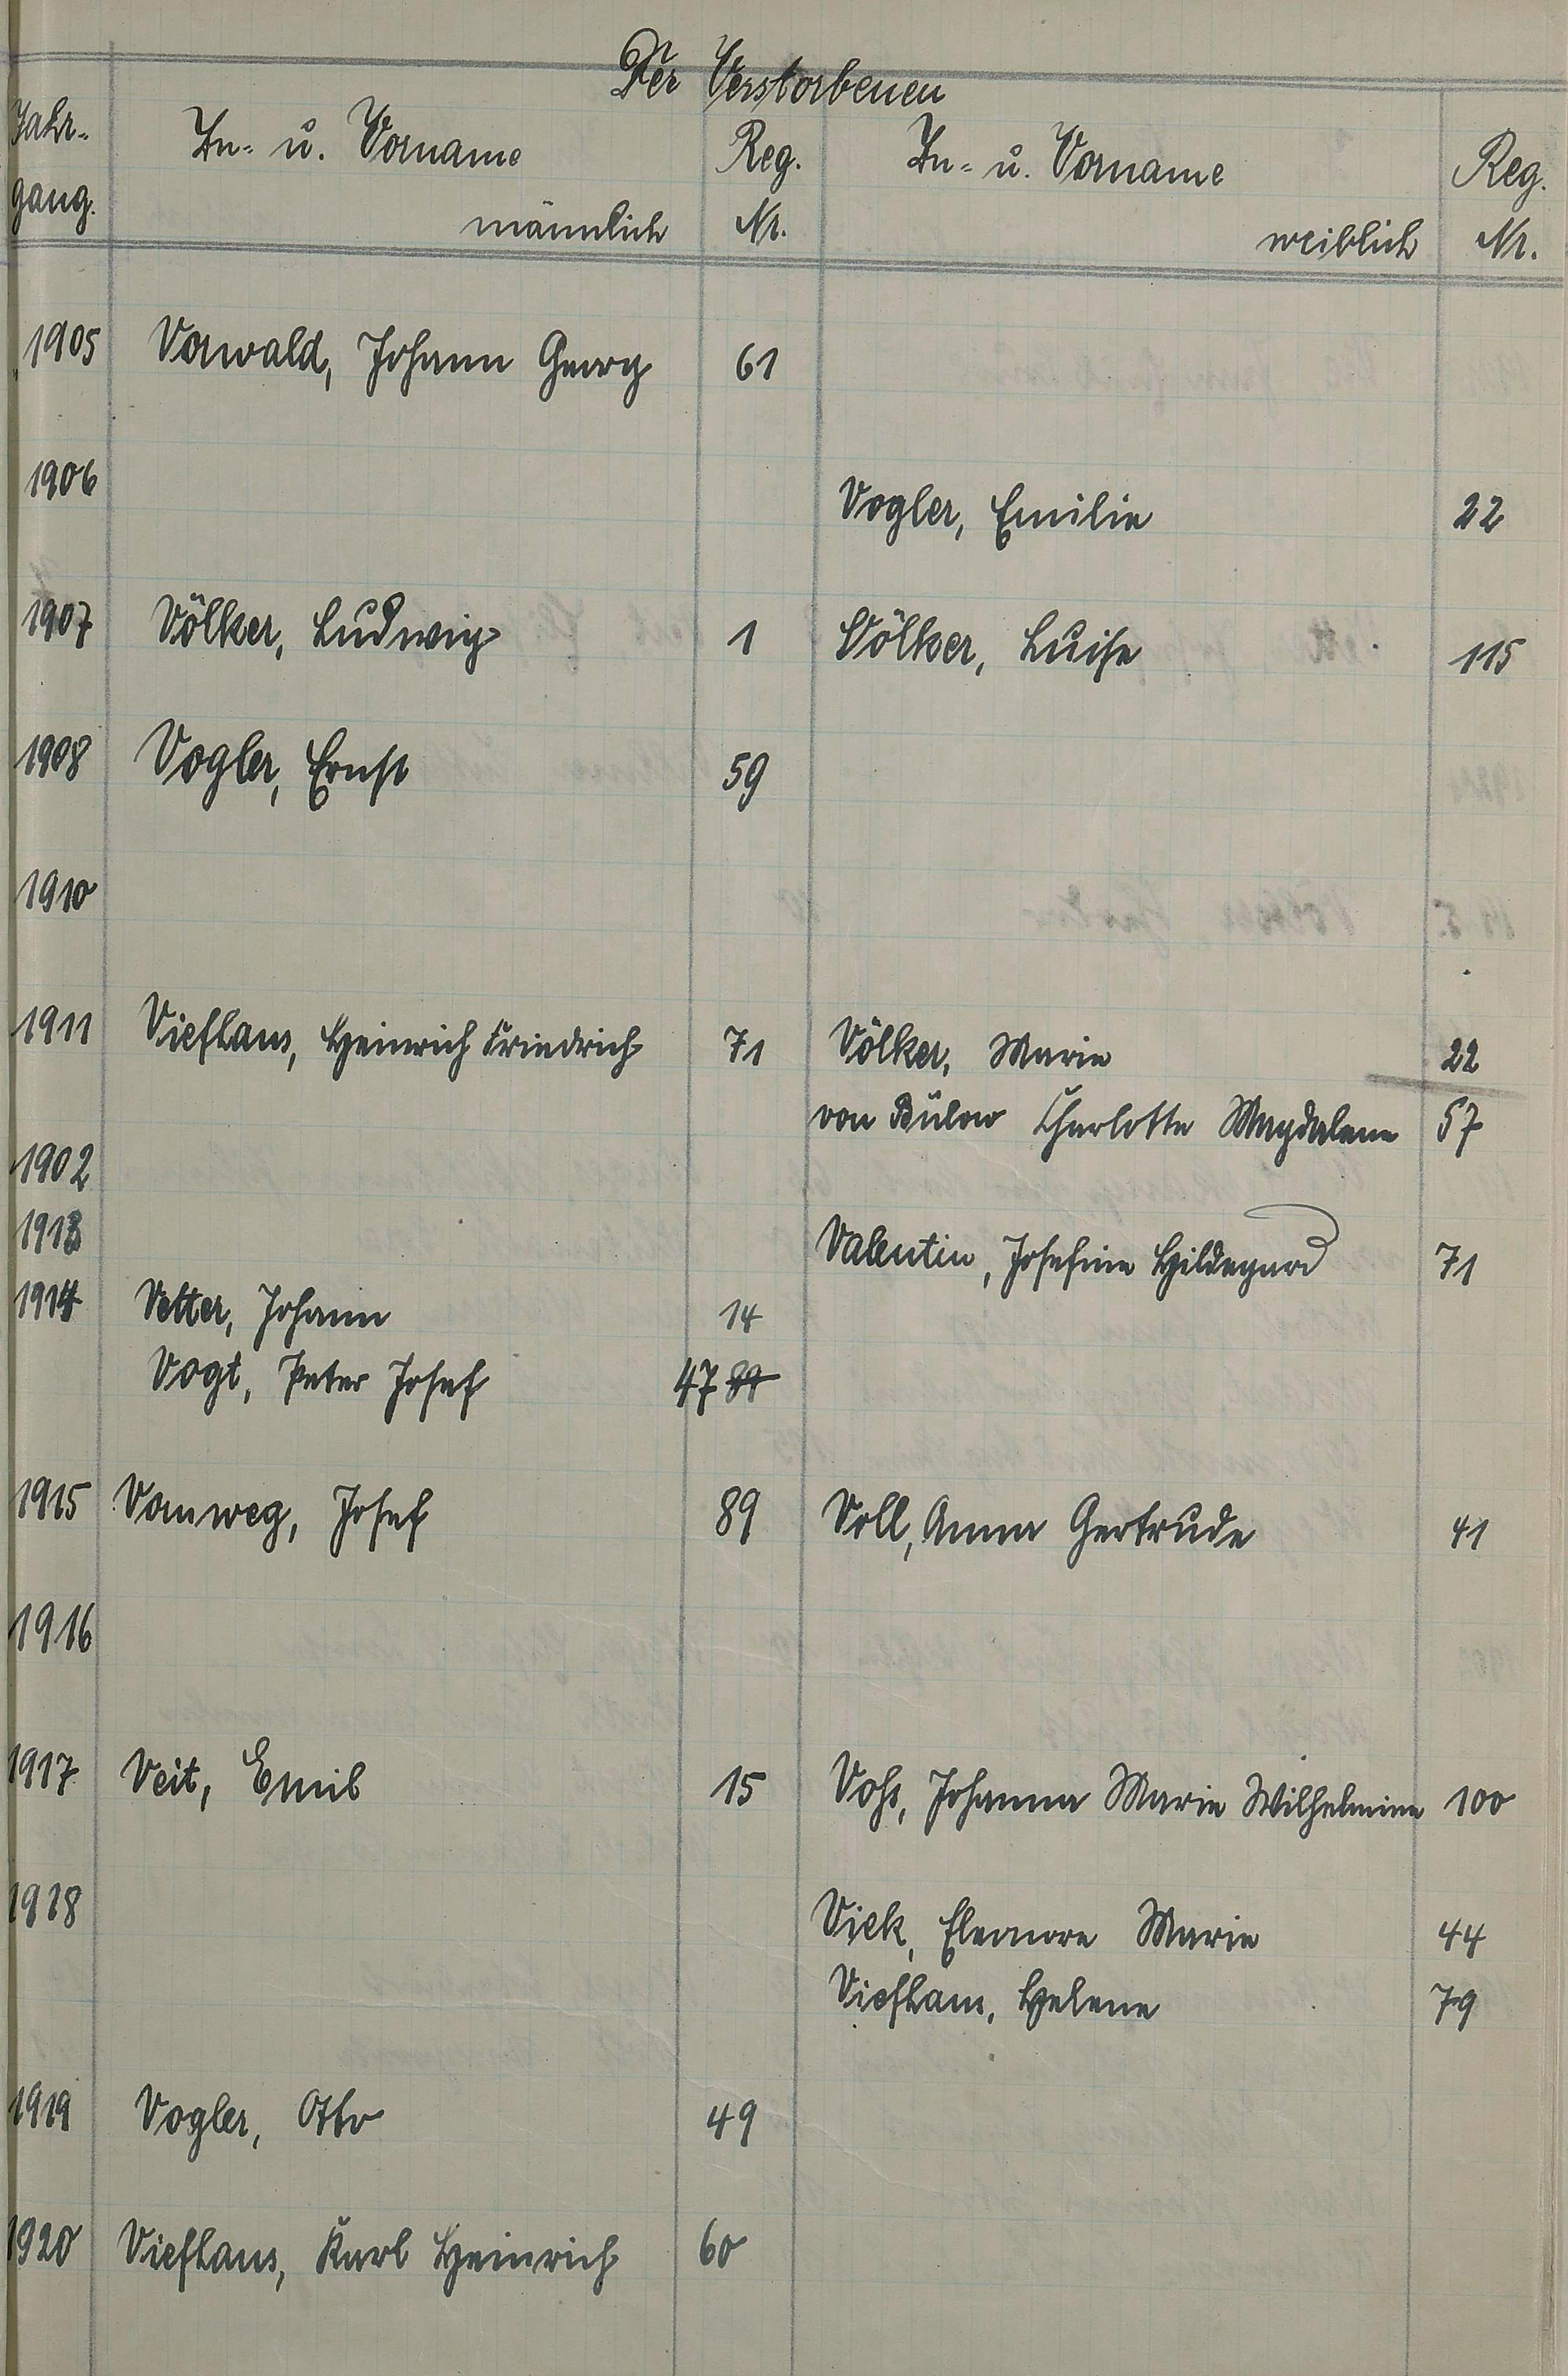 Der Verstorbenen
Jahr- Zu- u. Vorname Reg. Zu- u. Vorname Reg.
gang. männlich Nr. weiblich Nr.
1905 Vorwald, Johann Georg 61
1906 Vogler, Emilie 22
1907 Völker, Ludwig 1 Völker, Luise 115
1908 Vogler, Ernst 59
1910
1911 Viefhaus, Heinrich Friedrich 71 Völker, Marie 22
von Bülow Charlotte Magdalene 57
1902
1913 Valentin, Josefine Hildegard 71
1914 Vetter, Johann 14
Vogt, Peter Josef 47 89
1915 Vomweg, Josef 89 Voll, Anna Gertrude 41
1916
1917 Veit, Emil 15 Vohs, Johanna Marie Wilhelmine 100
1918 Viek, Eleonore Marie 44
Viefhaus, Helene 79
1919 Vogler, Otto 49
1920 Viefhaus, Karl Heinrich 60